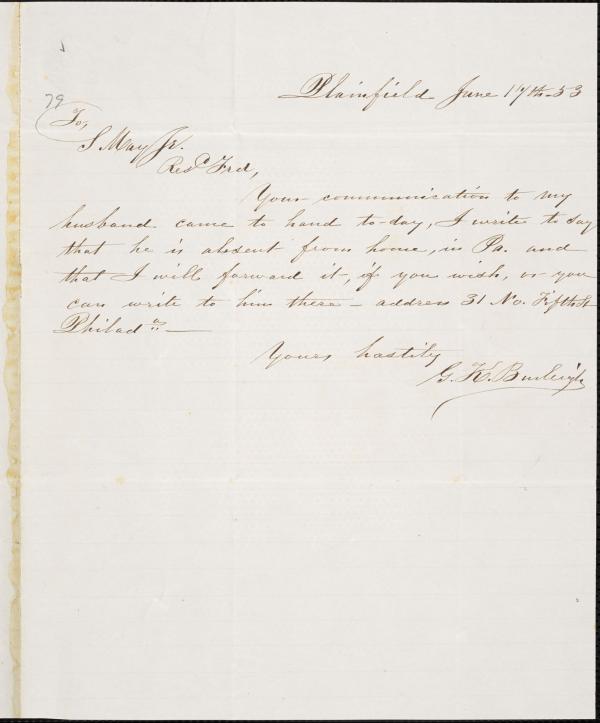 Plainfield June 17th-53
79
To,
S May Jr.
Resd Frd,
Your communication to my
husband came to hand to-day, I write to say
that he is absent from home, in Pa. and
that I will forward it, if you wish, or you
can write to him there - address 31 No. Fifth St
Philada —
Yours hastily
G. K. Burleigh